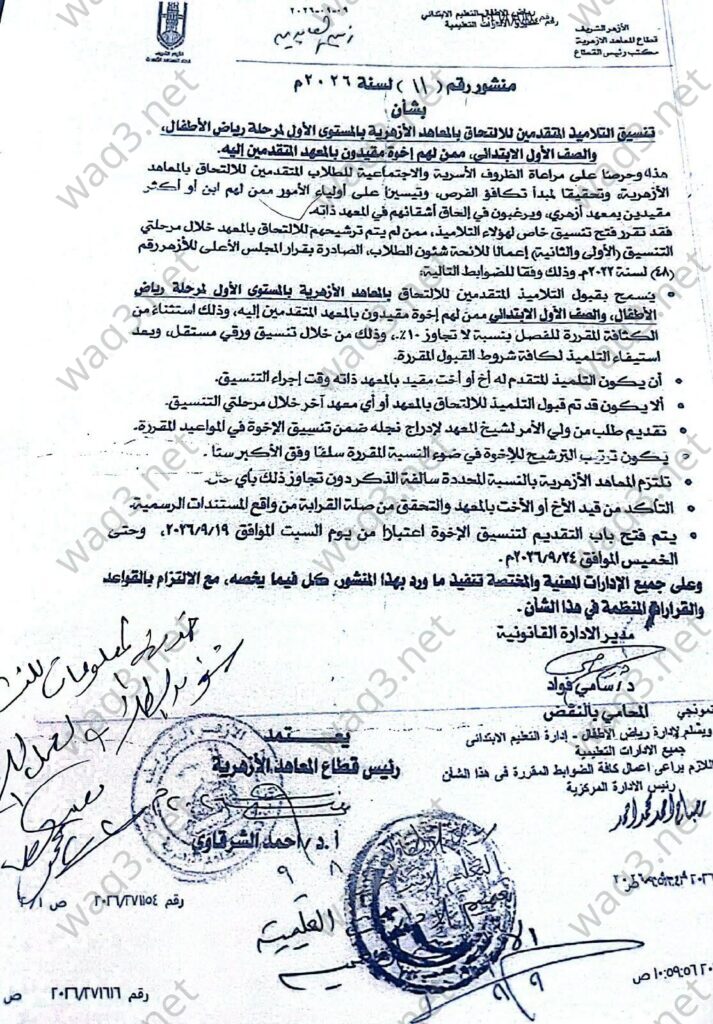 الأزهر الشريف
قطاع المعاهد الأزهرية
مكتب رئيس القطاع
منشور رقم (١١) لسنة ٢٠٢٦م
بشأن
تنسيق التلاميذ المتقدمين للالتحاق بالمعاهد الأزهرية بالمستوى الأول لمرحلة رياض الأطفال،
والصف الأول الابتدائى، ممن لهم إخوة مقيدون بالمعهد المتقدمين إليه.
هذا وحرصًا على مراعاة الظروف الأسرية والاجتماعية للطلاب المتقدمين للالتحاق بالمعاهد
الأزهرية، وتحقيقا لمبدأ تكافؤ الفرص، وتيسيرًا على أولياء الأمور ممن لهم ابن أو أكثر
مقيدين بمعهد أزهري، ويرغبون في إلحاق أشقائهم في المعهد ذاته.
فقد تقرر فتح تنسيق خاص لهؤلاء التلاميذ، ممن لم يتم ترشيحهم للالتحاق بالمعهد خلال مرحلتي
التنسيق (الأولى والثانية) إعمالا للائحة شئون الطلاب، الصادرة بقرار المجلس الأعلى للأزهر رقم
(٤٨) لسنة ٢٠٢٢م، وذلك وفقا للضوابط التالية:
• يسمح بقبول التلاميذ المتقدمين للالتحاق بالمعاهد الأزهرية بالمستوى الأول لمرحلة رياض
الأطفال، والصف الأول الابتدائي ممن لهم إخوة مقيدون بالمعهد المتقدمين إليه، وذلك استثناءً من
الكثافة المقررة للفصل بنسبة لا تجاوز ١٠٪، وذلك من خلال تنسيق ورقي مستقل، وبعد
استيفاء التلميذ لكافة شروط القبول المقررة.
• أن يكون التلميذ المتقدم له أخ أو أخت مقيد بالمعهد ذاته وقت إجراء التنسيق.
• ألا يكون قد تم قبول التلميذ للالتحاق بالمعهد أو أي معهد آخر خلال مرحلتي التنسيق.
• تقديم طلب من ولي الأمر لشيخ المعهد لإدراج نجله ضمن تنسيق الإخوة في المواعيد المقررة.
• يكون ترتيب الترشيح للإخوة في ضوء النسبة المقررة سلفًا وفق الأكبر سنًا.
• تلتزم المعاهد الأزهرية بالنسبة المحددة سالفة الذكر دون تجاوز ذلك بأي حال.
• التأكد من قيد الأخ أو الأخت بالمعهد والتحقق من صلة القرابة من واقع المستندات الرسمية.
• يتم فتح باب التقديم لتنسيق الإخوة اعتبارًا من يوم السبت الموافق ٢٠٢٦/٩/١٩، وحتى
الخميس الموافق ٢٠٢٦/٩/٢٤م.
وعلى جميع الإدارات المعنية والمختصة تنفيذ ما ورد بهذا المنشور، كل فيما يخصه، مع الالتزام بالقواعد
والقرارات المنظمة في هذا الشأن.
مدير الادارة القانونية
د/سامي فواد
المحامي بالنقض
يعتمد
رئيس قطاع المعاهد الأزهرية
أ.د/احمد الشرقاوي
ويسلم لإدارة رياض الأطفال - إدارة التعليم الابتدائى
جميع الادارات التعليمية
اللازم يراعى اعمال كافة الضوابط المقررة فى هذا الشأن
رئيس الادارة المركزية
رقم ٢٠٢٦/٢٧١٥٤
رقم ٢٠٢٦/٢٧١٦١٦ ص
١٠:٥٩:٥٦ ص
waq3.net